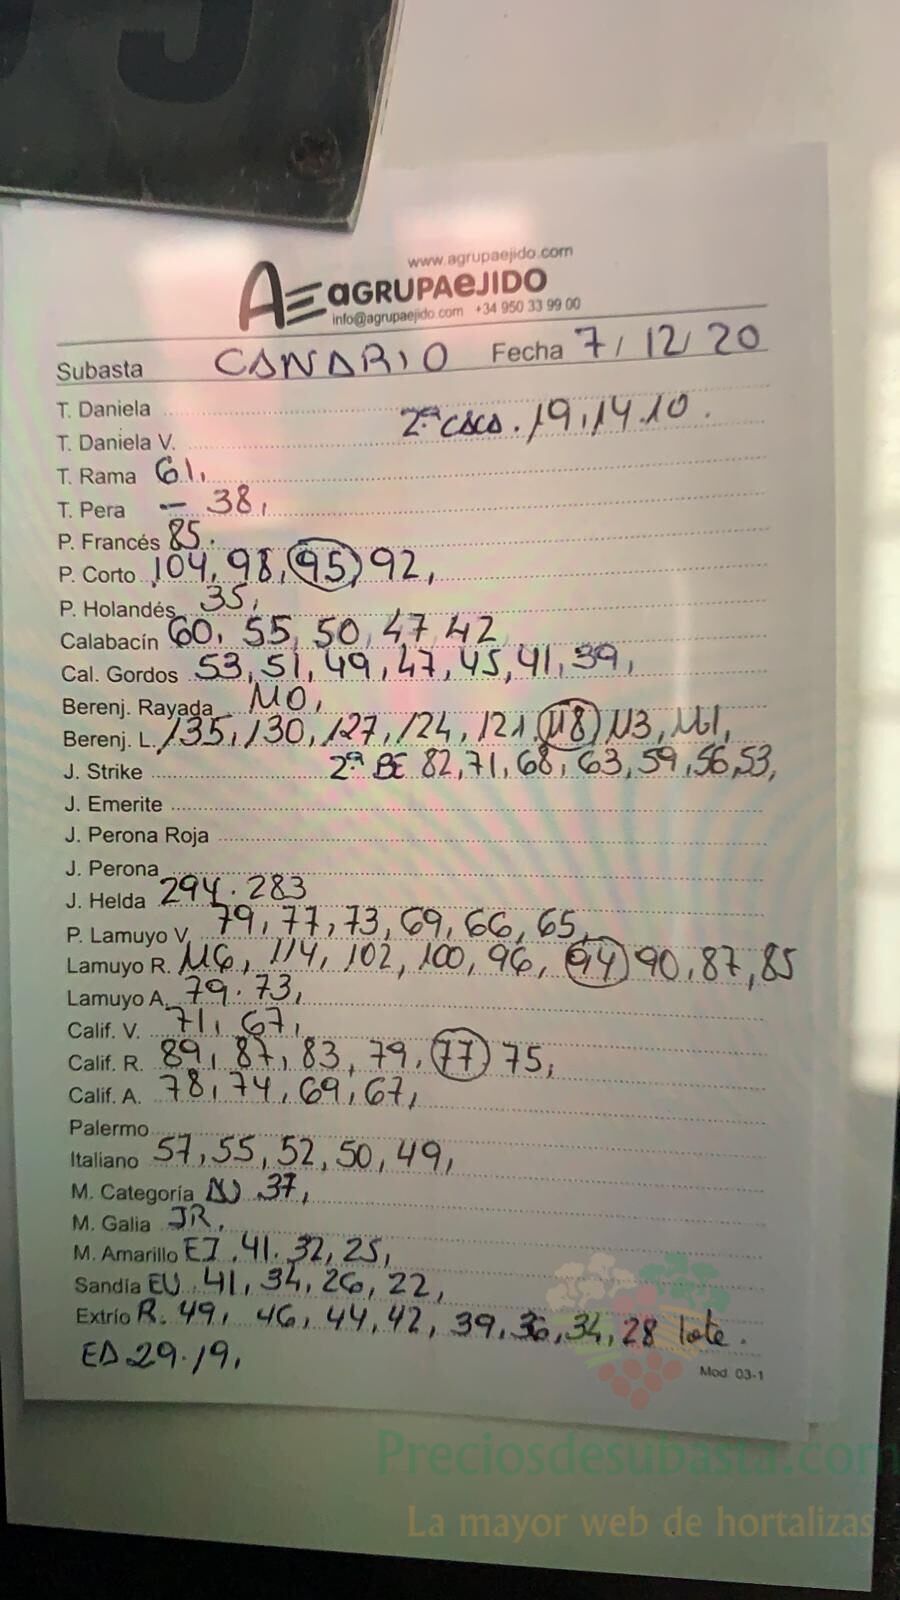 www.agrupaejido.com
AE aGRUPAeJIDO
info@agrupaejido.com +34 950 33 99 00
Subasta CANARIO Fecha 7/12/20
T. Daniela
2ª CACA. 19, 14. 10.
T. Daniela V.
T. Rama 61,
T. Pera - 38,
P. Francés 85.
P. Corto 104, 98, 95, 92,
P. Holandés 35,
Calabacín 60, 55, 50, 47, 42
Cal. Gordos 53, 51, 49, 47, 45, 41, 39,
Berenj. Rayada 110,
Berenj. L. 135, 130, 127, 124, 121, 118, 113, 111,
J. Strike 2ª BE 82, 71, 68, 63, 59, 56, 53,
J. Emerite
J. Perona Roja
J. Perona
J. Helda 294. 283
P. Lamuyo V. 79, 77, 73, 69, 66, 65,
Lamuyo R. 116, 114, 102, 100, 96, 94, 90, 87, 85
Lamuyo A. 79. 73,
Calif. V. 71, 67,
Calif. R. 89, 87, 83, 79, 77, 75,
Calif. A. 78, 74, 69, 67,
Palermo
Italiano 57, 55, 52, 50, 49,
M. Categoría 37,
M. Galia JR.
M. Amarillo EJ. 41. 32, 25,
Sandía EV. 41, 34, 26, 22,
Extrío R. 49, 46, 44, 42, 39, 36, 34, 28 lote.
EA 29. 19,
Mod. 03-1
Preciosdesubasta.com
La mayor web de hortalizas